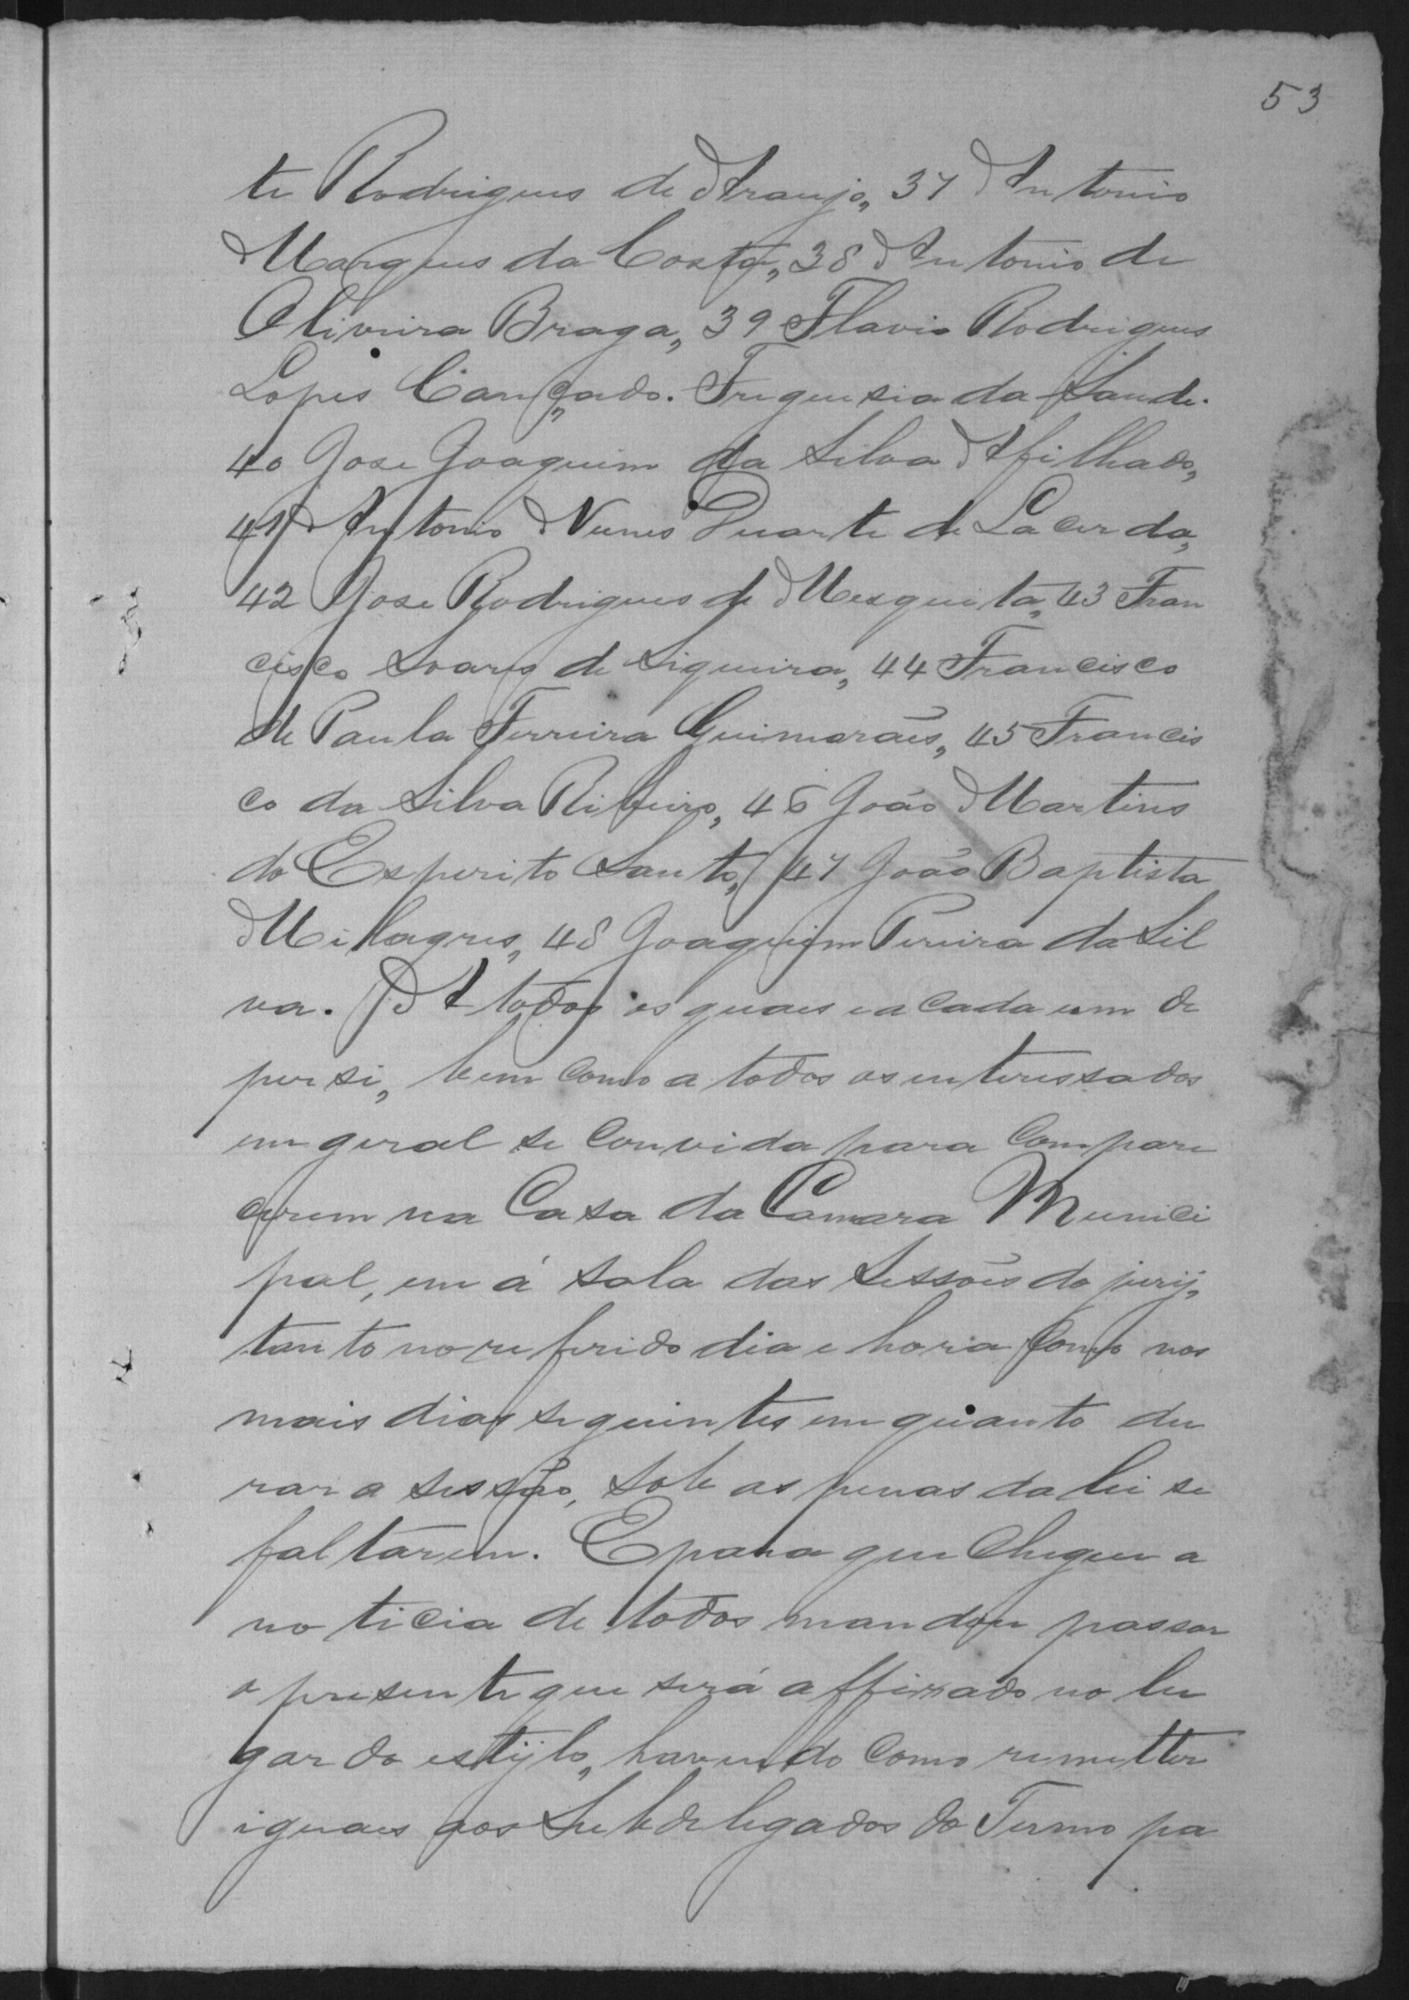 53
te Rodrigues de Araujo, 37 Antonio
Marques da Costa, 38 Antonio de
Oliveira Braga, 39 Flavio Rodrigues
Lopes Cançado. Freguesia da Saude.
40 Jose Joaquim da Silva Afilhado,
41 Antonio Nunes Duarte de Lacerda,
42 Jose Rodrigues de Mesquita, 43 Fran
cisco Soares de Siqueira, 44 Francisco
de Paula Ferreira Guimarães, 45 Francis
co da Silva Ribeiro, 46 João Martins
do Esperito Santo, 47 João Baptista
Milagres, 48 Joaquim Pereira da Sil
va. A todos os quaes e a cada um de
per si, bem como a todos os enteressados
em geral se convida para compare
cerem na Casa da Camara Munici
pal, em á sala das Sessões do jury,
tanto no referido dia e horia como nos
mais dias seguintes em quanto du
rar a sessão, sob as penas da lei se
faltarem. E para que chegue a
noticia de todos mandou passar
o presente que será affixado no lu
gar do estÿlo, havendo como remetter
iguaes aos Subdelegados do Termo pa